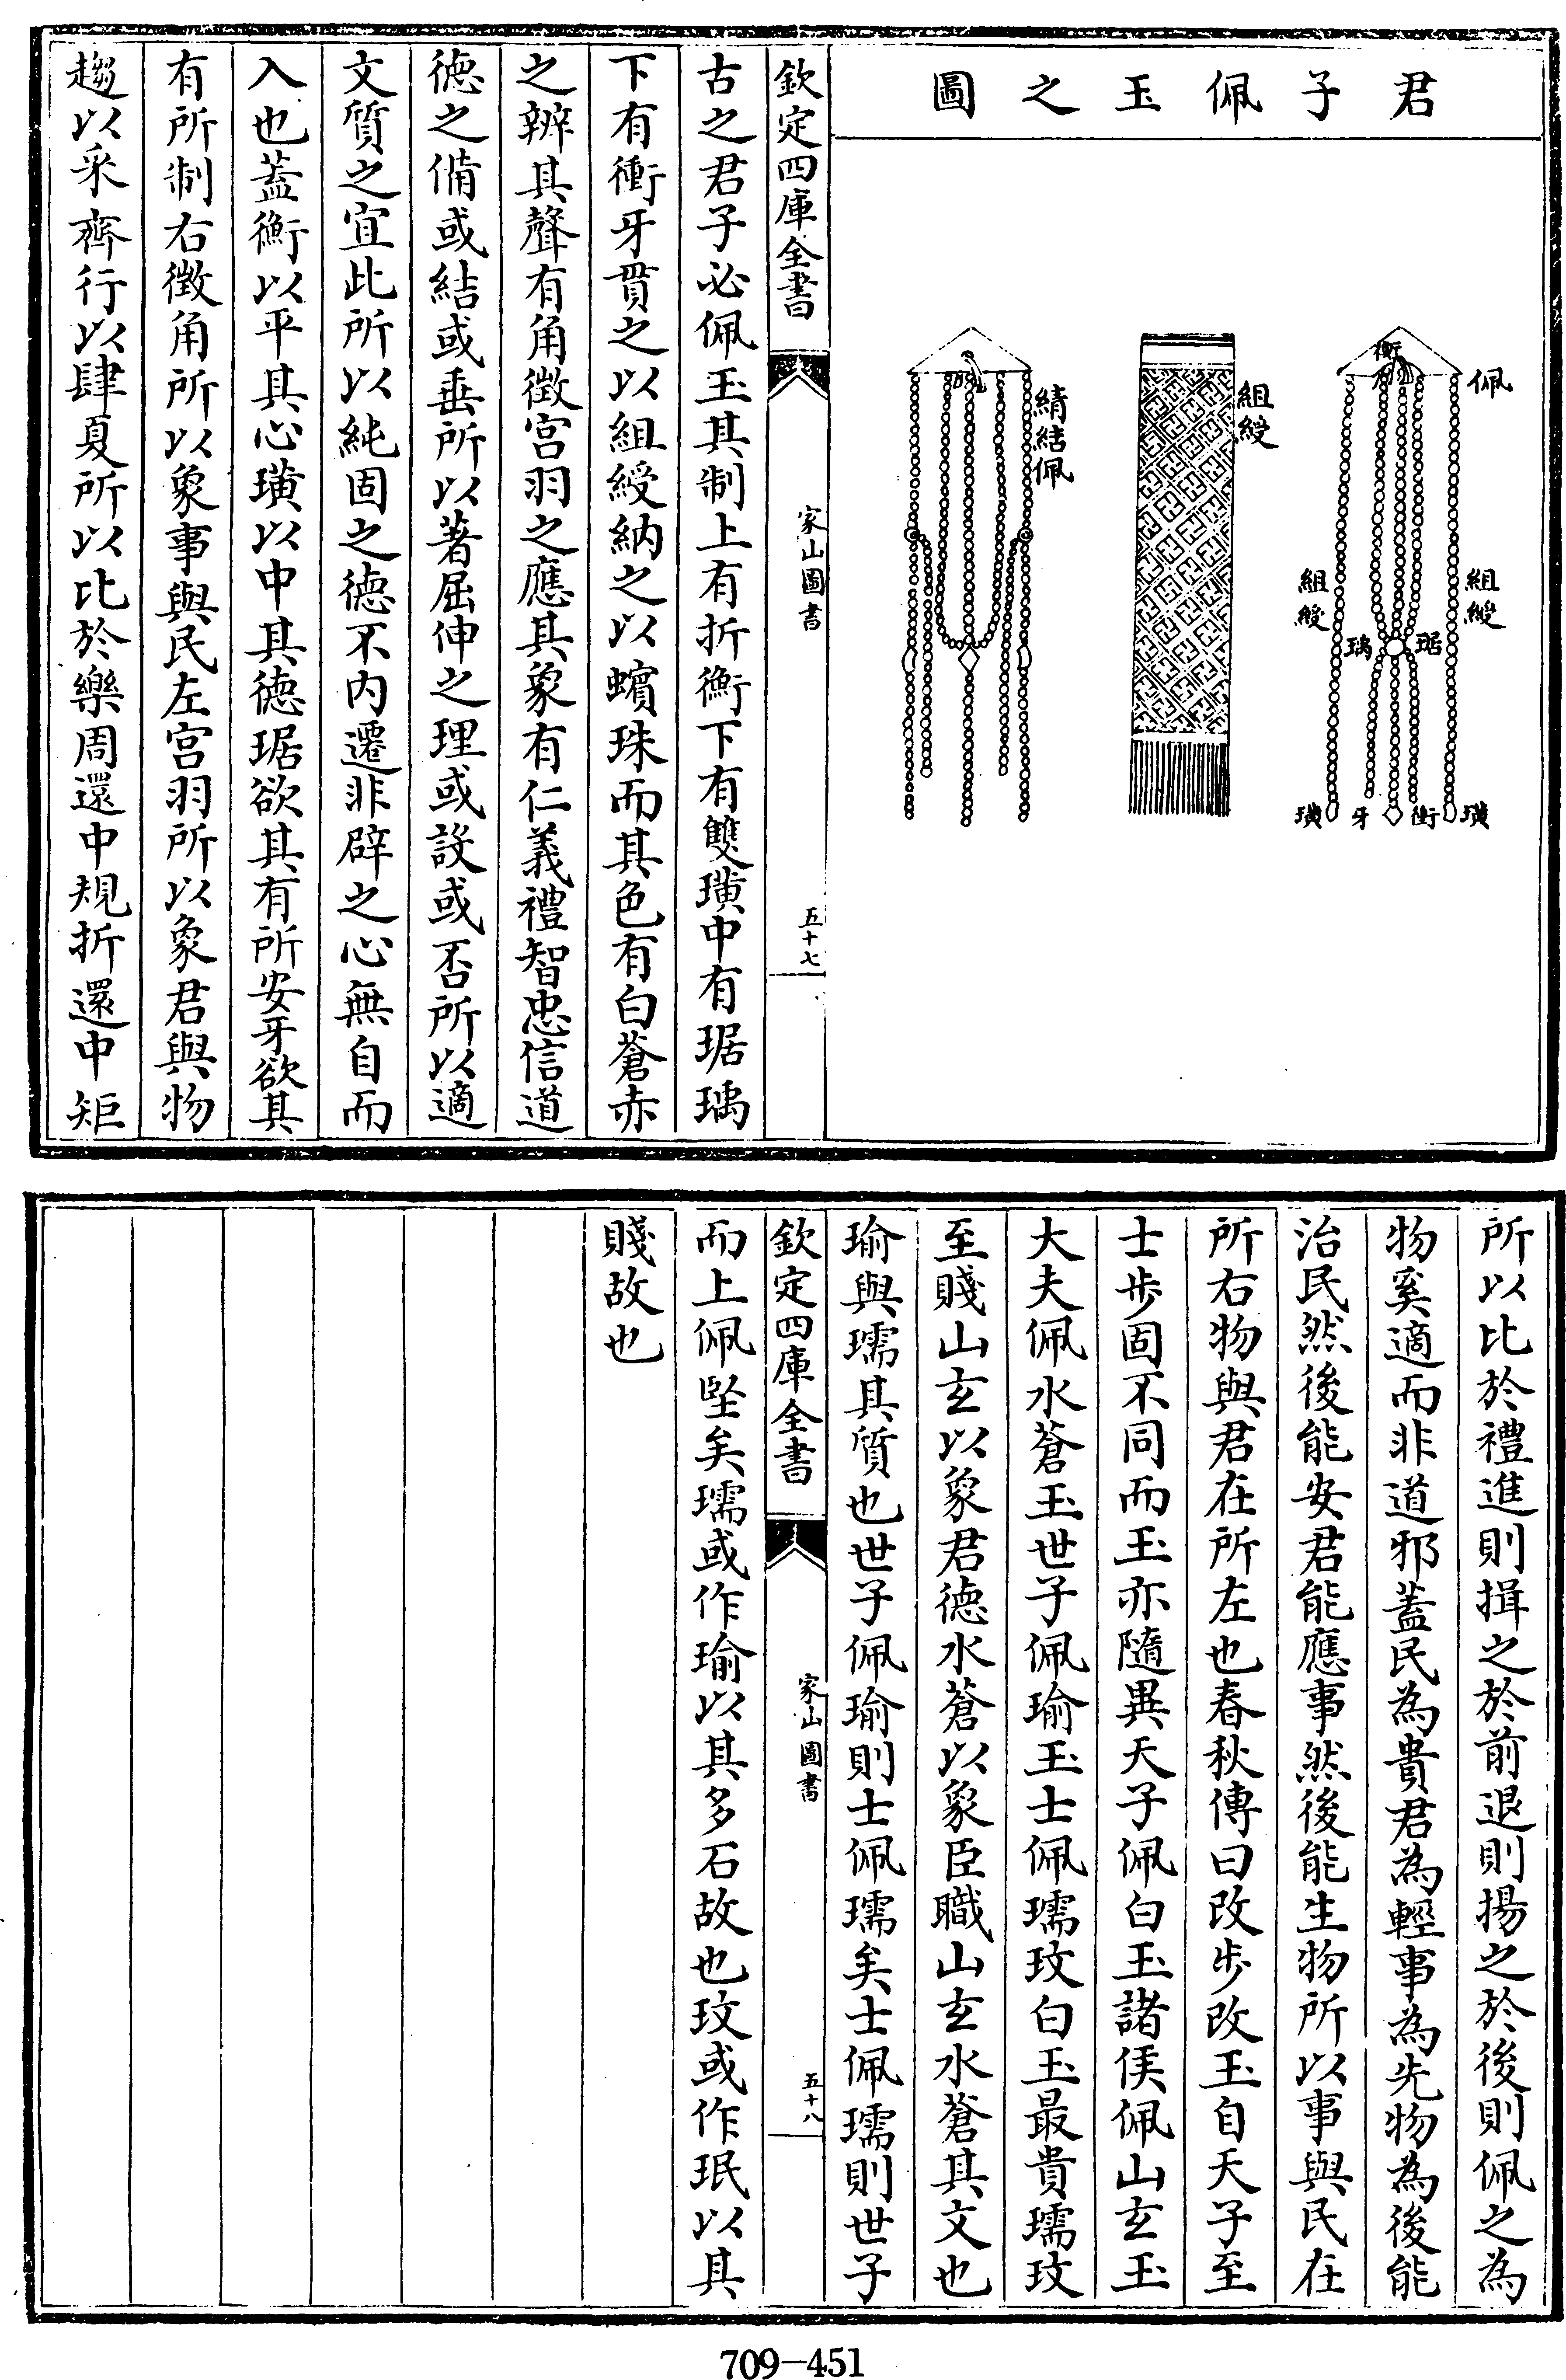 君子佩玉之圖
佩
衡
組綬
組綬
琚
瑀
璜
衝
牙
璜
組綬
綪結佩
欽定四庫全書
家山圖書
五十七
古之君子必佩玉其制上有折衡下有雙璜中有琚瑀
下有衝牙貫之以組綬納之以蠙珠而其色有白蒼赤
之辨其聲有角徵宫羽之應其象有仁義禮智忠信道
德之備或結或垂所以著屈伸之理或設或否所以適
文質之宜此所以純固之德不内遷非辟之心無自而
入也蓋衡以平其心璜以中其德琚欲其有所安牙欲其
有所制右徵角所以象事與民左宫羽所以象君與物
趨以采齊行以肆夏所以比於樂周還中規折還中矩
所以比於禮進則揖之於前退則揚之於後則佩之為
物奚適而非道邪蓋民為貴君為輕事為先物為後能
治民然後能安君能應事然後能生物所以事與民在
所右物與君在所左也春秋傳曰改步改玉自天子至
士步固不同而玉亦隨異天子佩白玉諸侯佩山玄玉
大夫佩水蒼玉世子佩瑜玉士佩瓀玟白玉最貴瓀玟
至賤山玄以象君德水蒼以象臣職山玄水蒼其文也
瑜與瓀其質也世子佩瑜則士佩瓀矣士佩瓀則世子
欽定四庫全書
家山圖書
五十八
而上佩堅矣瓀或作瑜以其多石故也玟或作珉以其
賤故也
709-451